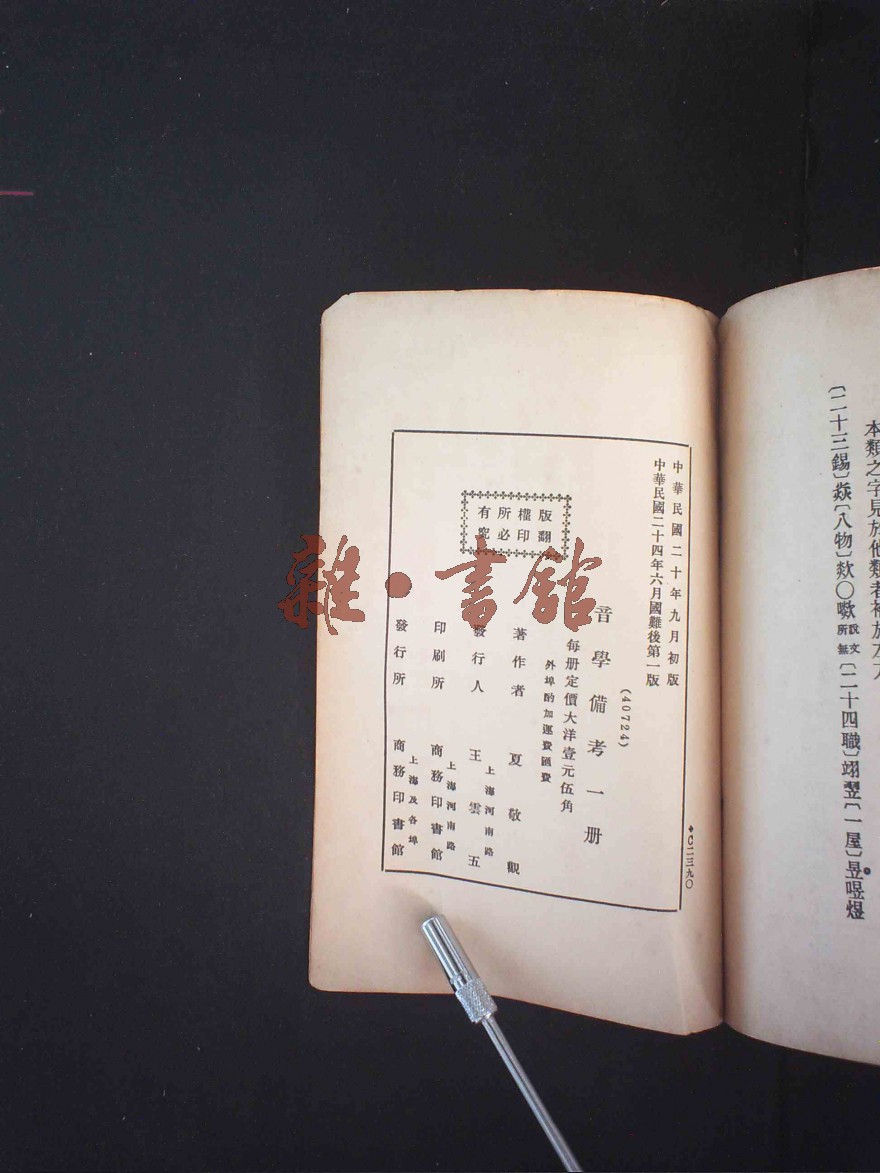 本類之字見於他類者補於左方
〔二十三錫〕焱〔八物〕欻〇噷說文所無〔二十四職〕翊翌〔一屋〕昱喅煜
中華民國二十年九月初版
中華民國二十四年六月國難後第一版
(40724)
音學備考一册
每册定價大洋壹元伍角
外埠酌加運費匯費
版權所有
翻印必究
著作者 夏敬觀
發行人 王雲五
上海河南路
印刷所 商務印書館
上海河南路
發行所 商務印書館
上海及各埠
◆C二三九〇
雜·書館